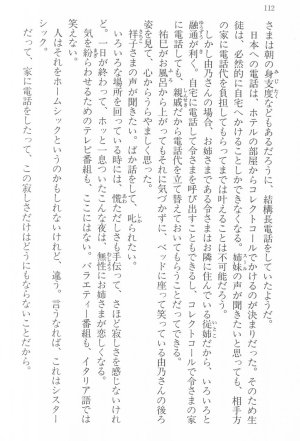 112
さまは朝の身支度などもあるだろうに、結構長電話をしていたようだ。
日本への電話は、ホテルの部屋からコレクトコールでかけるのが決まりだった。そのため生
徒は、必然的に自宅へかけることしかできなくなる。姉妹の声が聞きたいと思っても、相手方
の家に電話代を負担してもらってまでは叶えることができないのだ。
しかし由乃さんの場合、お姉さまである令さまはお隣に住んでいる従姉だから、いろいろと
融通が利く。自宅に電話して令さまを呼び出すこともできるし、コレクトコールで令さまの家
に電話しても、親戚だから電話代を立て替えておいてもらうことだってできる。
祐巳がお風呂から上がってもそれに気づかずに、ベッドに座って笑っている由乃さんの後ろ
姿を見て、心からうらやましく思った。
祥子さまの声が聞きたい。ばか話をして、叱られたい。
いろいろな場所を回っている時には、慌ただしさも手伝って、さほど寂しさを感じないけれ
ど。一日が終わって、ホッと一息ついたこんな夜は、無性にお姉さまが恋しくなる。
気を紛らわせるためのテレビ番組も、ここにはない。バラエティー番組も、イタリア語では
人はそれをホームシックというのかもしれないけれど、違う。言うなれば、これはシスター
シック。
だって、家に電話をしたって、この寂しさだけはどうにもならないことだから。